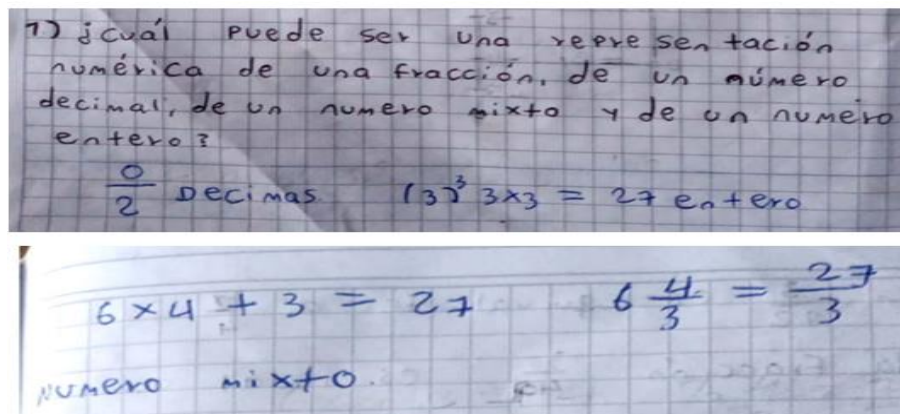 1) ¿cuál puede ser una representación
numérica de una fracción, de un número
decimal, de un numero mixto y de un numero
entero?
0/2 Decimas (3)³ 3x3 = 27 entero
6 x 4 + 3 = 27 6 4/3 = 27/3
Numero mixto